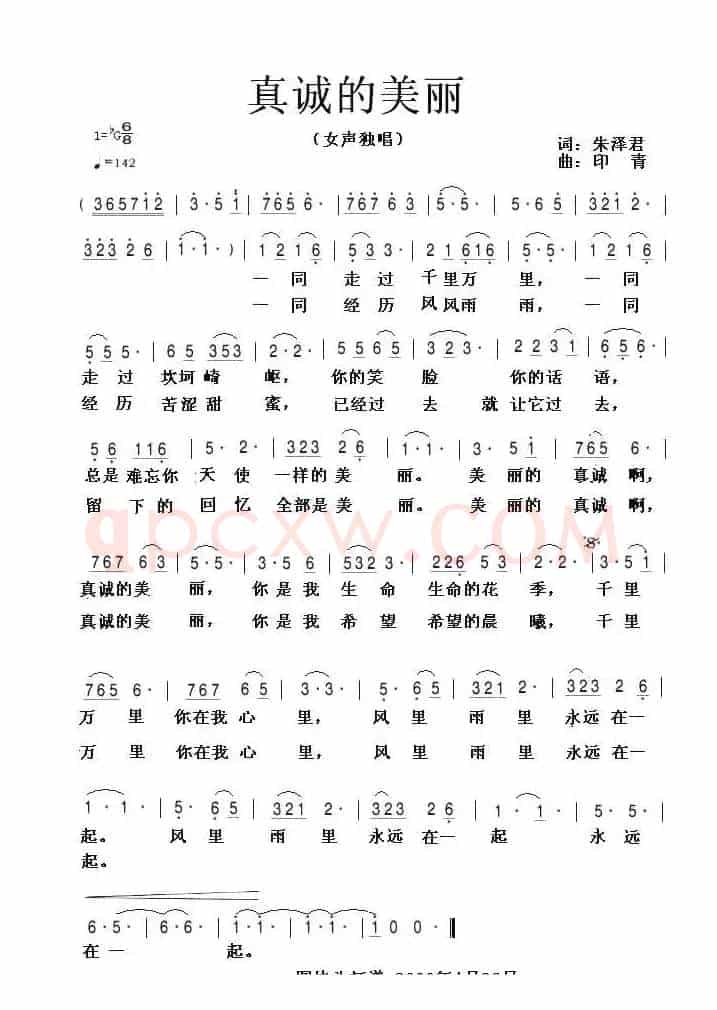 真诚的美丽
1=♭G 6/8
（女声独唱）
词：朱泽君
♩=142
曲：印 青
( 365712 | 3· 5 1 | 765 6· | 767 6 3 | 5· 5· | 5· 6 5 | 321 2· |
323 2 6 | 1· 1· ) | 1 2 1 6 | 5 3 3· | 2 1 616 | 5· 5· | 1 2 1 6 |
一 同 走 过 千里万 里， 一 同
一 同 经 历 风风雨 雨， 一 同
5 5 5· | 6 5 353 | 2· 2· | 335 5· | 3 2 3 · | 2 23 1 | 656 ·
走 过 坎坷崎 岖， 你的笑 脸 你的话 语，
经 历 苦涩甜 蜜， 已经过 去 就 让它过 去，
5 6 116 | 5· 2· | 323 2 6 | 1· 1· | 3· 5 1 | 765 6· |
总是难忘你 天 使 一样的美 丽。 美 丽的 真诚啊，
留 下 的 回 忆 全部是美 丽。 美 丽的 真诚啊，
qpcxw.COM
767 6 3 | 5· 5· | 3· 5 6 | 532 3· | 226 5 3 | 2· 2· | 3· 5 1 |
真诚的美 丽， 你 是我 生 命 生命的花 季， 千 里
真诚的美 丽， 你 是我 希 望 希望的晨 曦， 千 里
765 6· | 767 6 5 | 3· 3· | 5· 6 5 | 321 2· | 323 2 6 |
万 里 你在我 心 里， 风 里 雨 里 永远在一
万 里 你在我 心 里， 风 里 雨 里 永远在一
1 · 1 · | 5· 6 5 | 321 2· | 323 2 6 | 1 · 1 · | 5· 5· |
起。 风 里 雨 里 永远 在一 起 永 远
起。
6· 5· | 6· 6· | 1· 1· | 1· 1· | 1 0 0 · ‖
在 一 起。